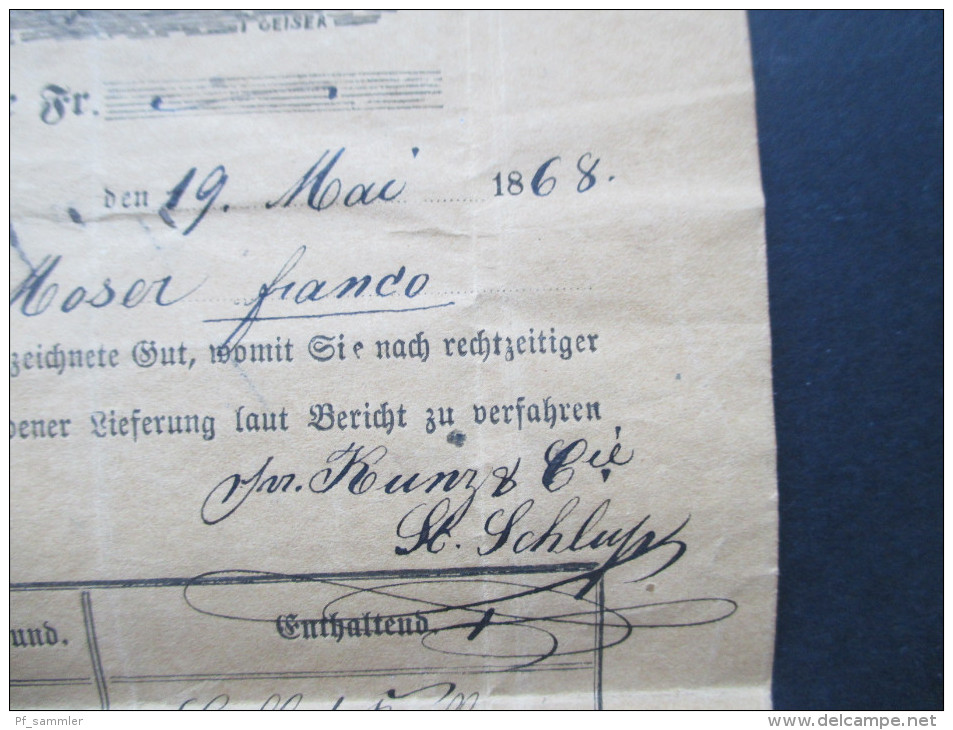 GEISER
Fr.
den 19. Mai 1868.
Moser franco
zeichnete Gut, womit Sie nach rechtzeitiger
bener Lieferung laut Bericht zu verfahren
pr. Kunz & Cie
St. Schlup
und. Enthaltend.
Pf_sammler
www.delcampe.net